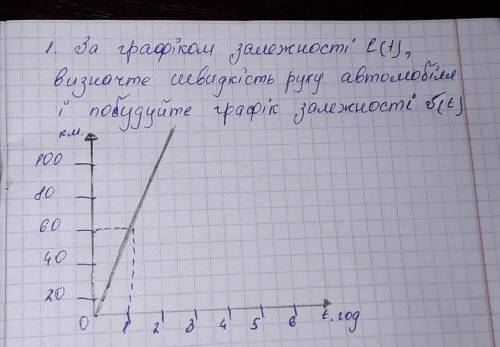 1. За графіком залежності l(t),
визначте швидкість руху автомобіля
і побудуйте графік залежності v(t)
км.
100
80
60
40
20
0 1 2 3 4 5 6 t.год